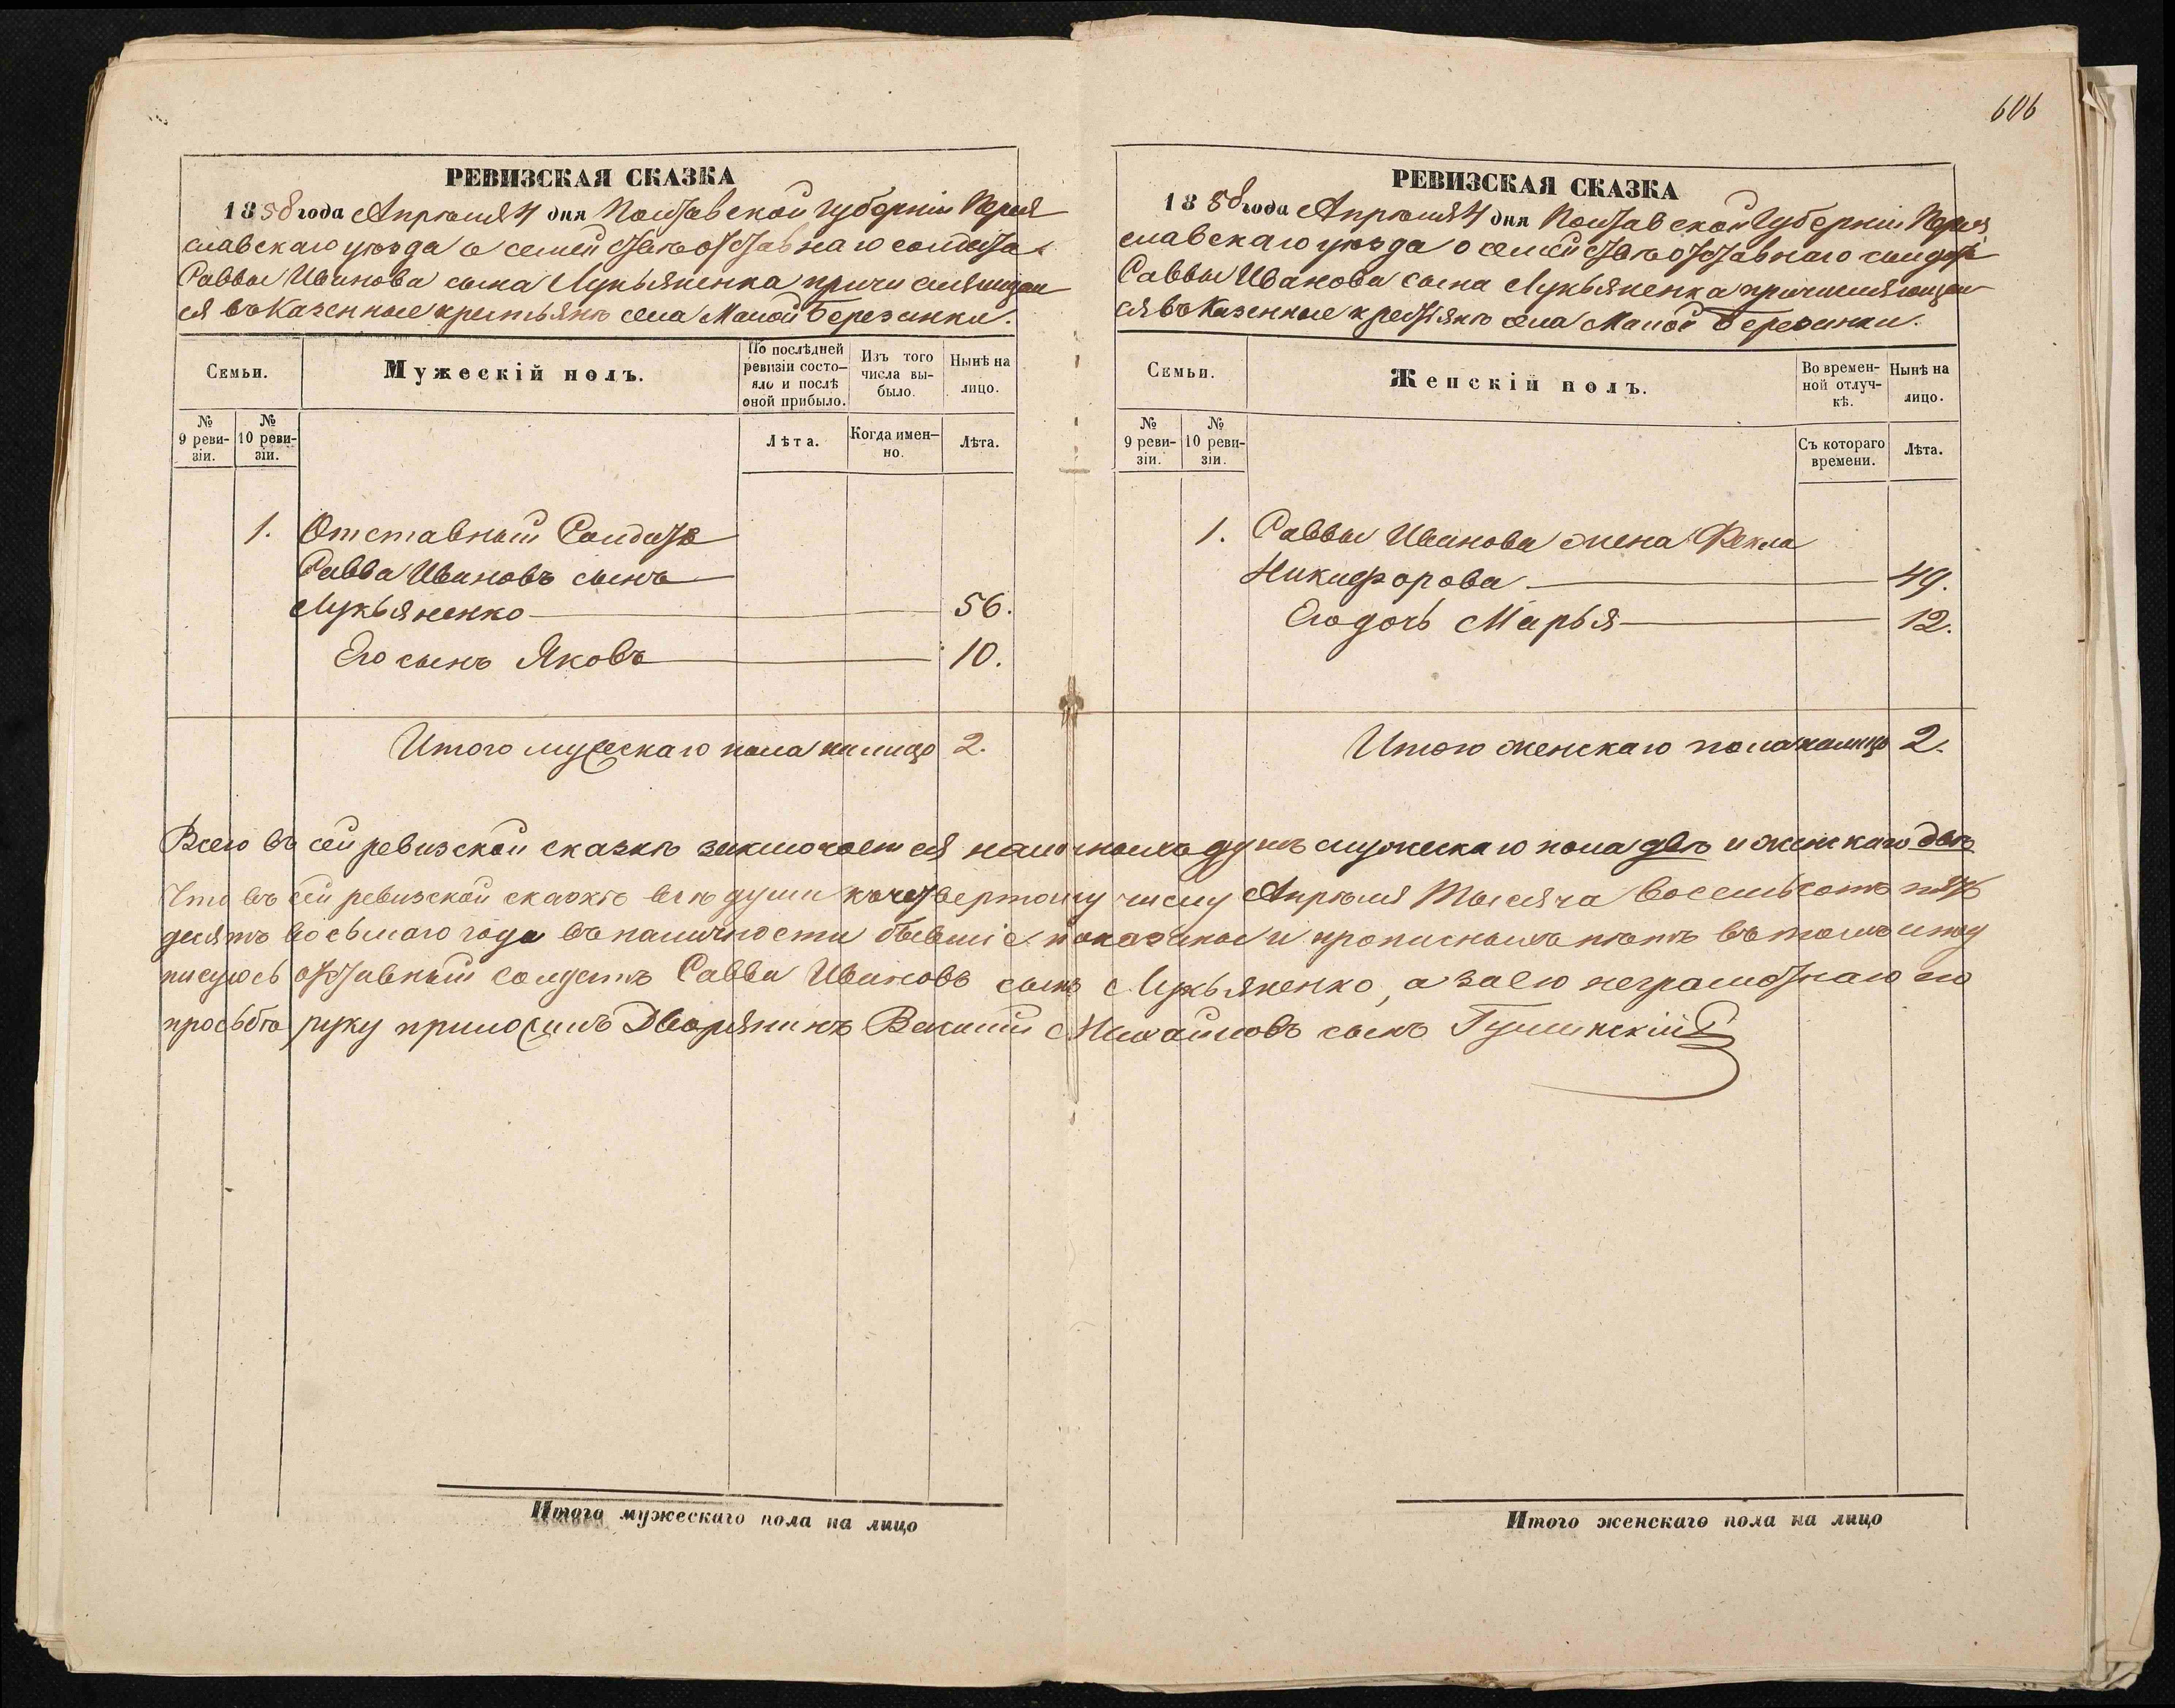 606
РЕВИЗСКАЯ СКАЗКА
1858 года Апрѣля 4 дня Полтавской Губерніи Перея
славскаго уѣзда о семействѣ отставнаго солдата
Саввы Иванова сына Лукьяненка причисляющаго
ся въ Казенные крестьяне села Малой Березанки.
Семьи.
Мужескій полъ.
По послѣдней ревизіи состояло и послѣ оной прибыло.
Изъ того числа выбыло.
Нынѣ на лицо.
№ 9 ревизіи.
№ 10 ревизіи.
Лѣта.
Когда именно.
Лѣта.
1. Отставный Солдатъ
Савва Ивановъ сынъ
Лукьяненко 56.
Его сынъ Яковъ 10.
Итого мужескаго пола на лицо 2.
РЕВИЗСКАЯ СКАЗКА
1858 года Апрѣля 4 дня Полтавской Губерніи Перея
славскаго уѣзда о семействѣ отставнаго солдата
Саввы Иванова сына Лукьяненка причисляющаго
ся въ Казенные крестьяне села Малой Березанки.
Семьи.
Женскій полъ.
Во временной отлучкѣ.
Нынѣ на лицо.
№ 9 ревизіи.
№ 10 ревизіи.
Съ котораго времени.
Лѣта.
1. Саввы Иванова жена Фекла
Никифорова 49.
Его дочь Марья 12.
Итого женскаго пола на лицо 2.
Всего въ сей ревизской сказкѣ заключается наличныхъ душъ мужескаго пола двѣ и женскаго двѣ
Что въ сей ревизской сказкѣ всѣ души к четвертому числу Апрѣля Тысяча восемьсотъ пять
десятъ восьмаго года въ наличности бывшіе показаны и прописныхъ нѣтъ въ томъ и под
писуюсь отставный солдатъ Савва Ивановъ сынъ Лукьяненко, а за его неграмотнаго по
просьбѣ руку приложилъ Дворянинъ Василій Михайловъ сынъ
Итого мужескаго пола на лицо
Итого женскаго пола на лицо